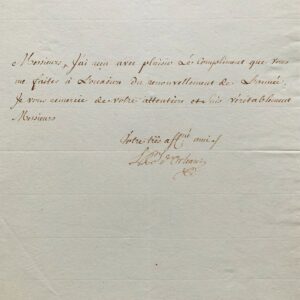 Messieurs, J'ai reçu avec plaisir Le Compliment que vous
me faites à L'occasion du renouvellement de L'année,
Je vous remercie de votre attention et suis véritablement
Messieurs
Votre très aff.né ami
L. P. d'Orleans